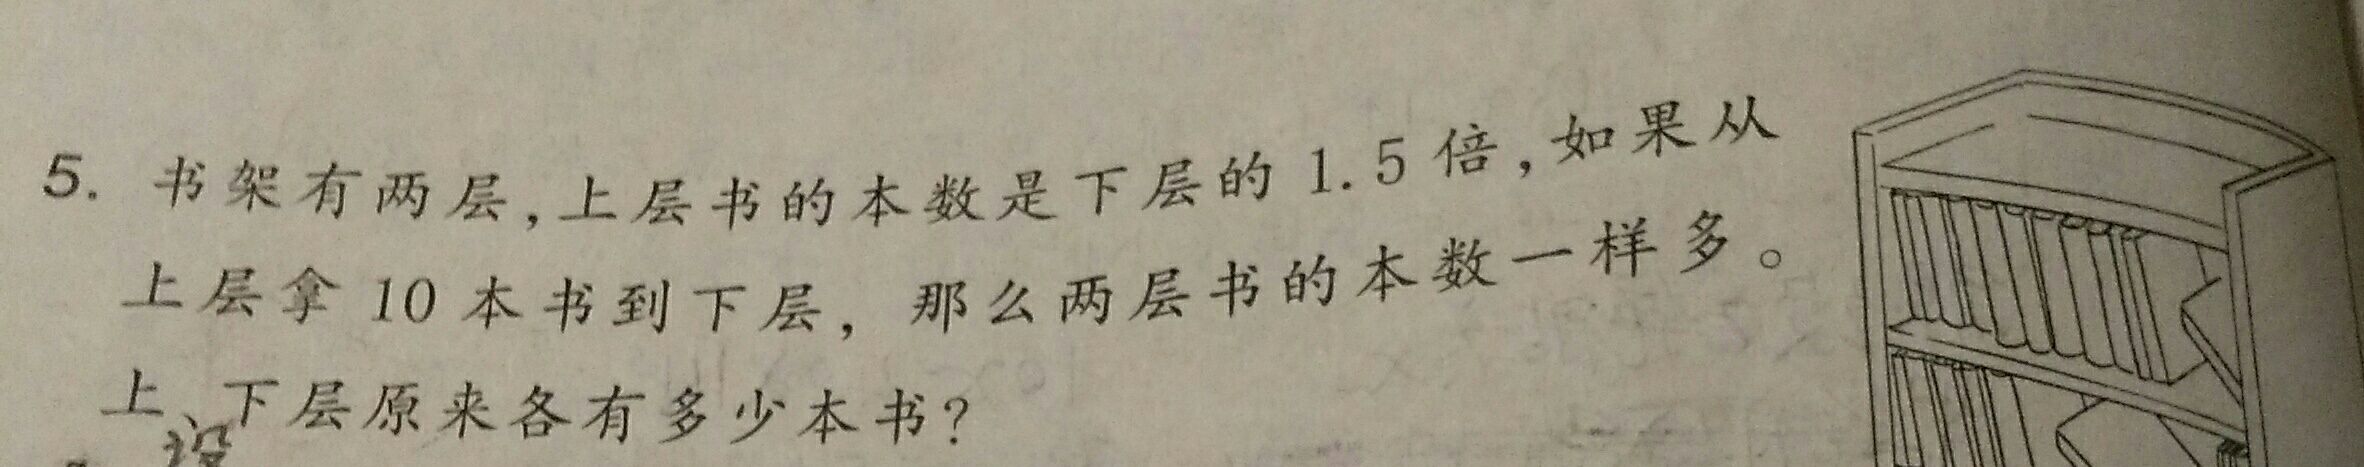 5. 书架有两层,上层书的本数是下层的 1.5 倍,如果从
上层拿 10 本书到下层,那么两层书的本数一样多。
上、下层原来各有多少本书?
设